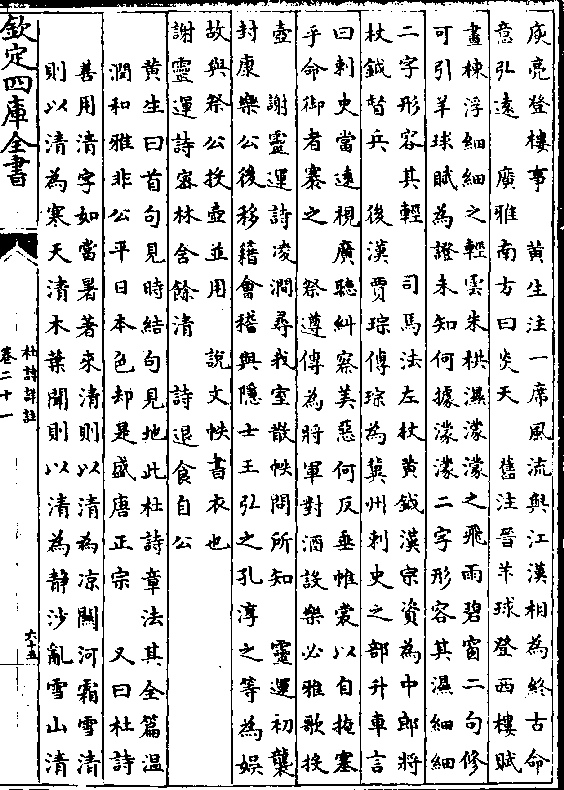 庾亮登樓事　黄生注一席風流與江漢相為終古命
意弘遠　廣雅南方曰炎天　舊注晉羊球登西樓賦
畫棟浮細細之輕雲朱栱濕濛濛之飛雨碧窗二句修
可引羊球賦為證未知何據濛濛二字形容其濕細細
二字形容其輕　司馬法左杖黄鉞漢宗資為中郎將
杖鉞督兵　後漢賈琮傳琮為冀州刺史之部升車言
曰刺史當遠視廣聽糾察美惡何反垂帷裳以自掩塞
乎命御者褰之　祭遵傳為將軍對酒設樂必雅歌投
壺　謝靈運詩凌澗尋我室散帙問所知　靈運初襲
封康樂公後移籍會稽與隱士王弘之孔淳之等為娛
故與祭公投壺並用　說文帙書衣也
謝靈運詩密林含餘清　詩退食自公
黄生曰首句見時結句見地此杜詩章法其全篇温
潤和雅非公平日本色却是盛唐正宗　又曰杜詩
善用清字如當暑著來清則以清為凉關河霜雪清
則以清為寒天清木葉聞則以清為静沙亂雪山清
欽定四庫全書
杜詩詳註
卷二十一
六十五